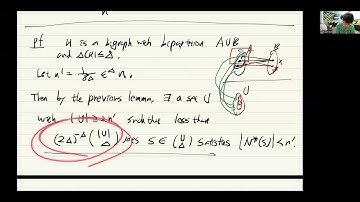 pf H is a bigraph with bipartition A∪B
and Δ(H) ≤ Δ.
Let n' = 1/8Δ ε^Δ n.
Then by the previous lemma, ∃ a set U
with |U| ≥ 2n' such that less than
(2Δ)^-Δ (|U| Δ) sets S ∈ (U Δ) satisfies |N*(S)| < n'.
A
B
x
U